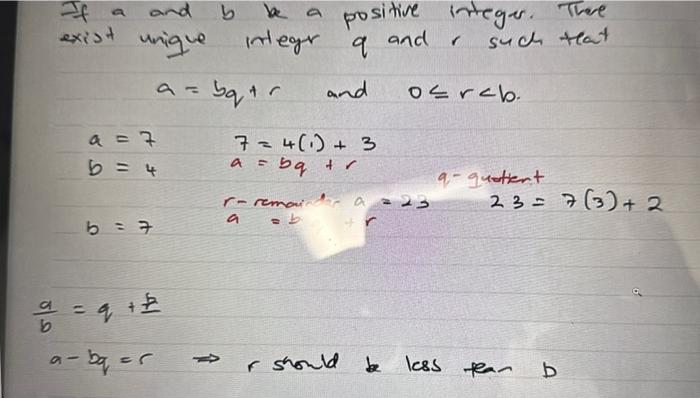 If a and b be a positive integer. There
exist unique integr q and r such that
a = bq + r and 0 ≤ r < b.
a = 7 7 = 4(1) + 3
b = 4 a = bq + r
q - quotient
r - remainder a = 23 23 = 7(3) + 2
b = 7 a = b + r
a/b = q +
a - bq = r ⇒ r should be less than b